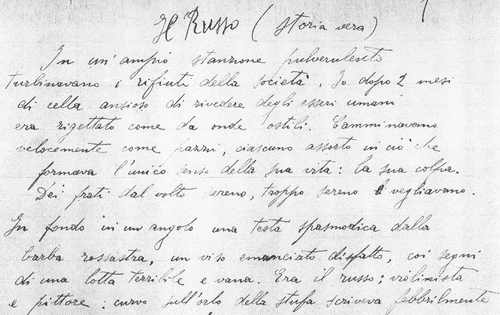 1
Il Russo ( Storia vera )
In un'ampio stanzone pulverulento
turbinavano i rifiuti della società. Io dopo 2 mesi
di cella ansioso di rivedere degli esseri umani
ero rigettato come da onde ostili. Camminavano
velocemente come pazzi, ciascuno assorto in ciò che
formava l'unico senso della sua vita: la sua colpa.
Dei frati dal volto sereno, troppo sereno vegliavano.
In fondo in un angolo una testa spasmodica dalla
barba rossastra, un viso emanciato disfatto, coi segni
di una lotta terribile e vana. Era il russo; violinista
e pittore: curvo sull'orlo della stufa scriveva febbrilmente